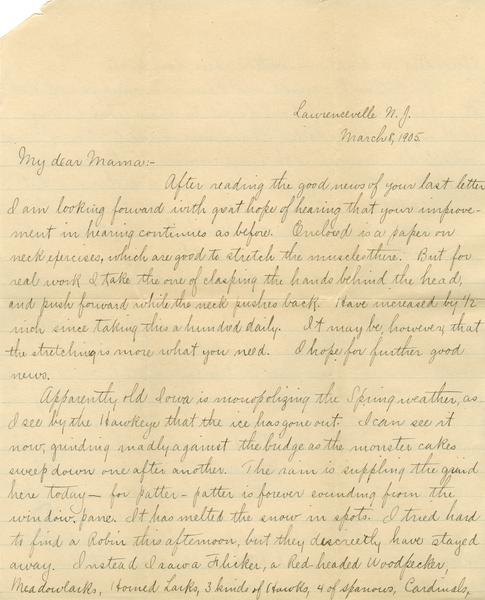 Lawrenceville N. J.
March 8, 1905.
My dear Mama:-
After reading the good news of your last letter
I am looking forward with great hope of hearing that your improve-
ment in hearing continues as before. Enclosed is a paper on
neck exercises, which are good to stretch the muscles there. But for
real work I take the one of clasping the hands behind the head,
and push forward while the neck pushes back. Have increased by 1/2
inch since taking this a hundred daily. It may be, however, that
the stretching is more what you need. I hope for further good
news.
Apparently old Iowa is monopolizing the Spring weather, as
I see by the Hawkeye that the ice has gone out. I can see it
now, grinding madly against the bridge as the monster cakes
sweep down one after another. The rain is suppling the
here today - for patter - patter is forever sounding from the
window pane. It has melted the snow in spots. I tried hard
to find a Robin this afternoon, but they discreetly have stayed
away. Instead I saw a Flicker, a Red-headed Woodpecker,
Meadowlarks, Horned Larks, 3 kinds of Hawks, 4 of sparrows, Cardinals,